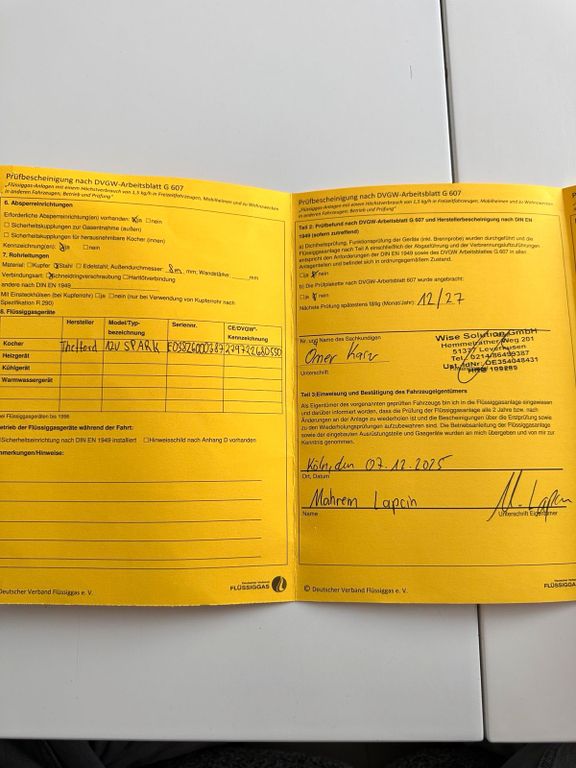 Prüfbescheinigung nach DVGW-Arbeitsblatt G 607
„Flüssiggas-Anlagen mit einem Höchstverbrauch von 1,5 kg/h in Freizeitfahrzeugen, Mobilheimen und zu Wohnzwecken
in anderen Fahrzeugen; Betrieb und Prüfung“
6. Absperreinrichtungen
Erforderliche Absperreinrichtung(en) vorhanden: ☒ja ☐nein
☐ Sicherheitskupplungen zur Gasentnahme (außen)
☐ Sicherheitskupplungen für herausnehmbare Kocher (innen)
Kennzeichnung(en): ☒ja ☐nein
7. Rohrleitungen
Material: ☐Kupfer ☒Stahl ☐ Edelstahl; Außendurchmesser: 8m mm; Wandstärke mm
Verbindungsart: ☒Schneidringverschraubung ☐Hartlötverbindung
andere nach DIN EN 1949
Mit Einsteckhülsen (bei Kupferrohr) ☐ja ☐nein (nur bei Verwendung von Kupferrohr nach
Spezifikation R 290)
8. Flüssiggasgeräte
Hersteller Model/Typ-bezeichnung Seriennr. CE/DVGW-Kennzeichen
Kocher Thetford 12V SPARK
Heizgerät
Kühlgerät
Warmwassergerät
bei Flüssiggasgeräten bis 1996
Betrieb der Flüssiggasanlage während der Fahrt:
☐Sicherheitseinrichtung nach DIN EN 1949 installiert ☐Hinweisschild nach Anhang D vorhanden
Bemerkungen/Hinweise:
© Deutscher Verband Flüssiggas e. V.
Deutscher Verband
FLÜSSIGGAS
Prüfbescheinigung nach DVGW-Arbeitsblatt G 607
„Flüssiggas-Anlagen mit einem Höchstverbrauch von 1,5 kg/h in Freizeitfahrzeugen, Mobilheimen und zu Wohnzwecken
in anderen Fahrzeugen; Betrieb und Prüfung“
Teil 2: Prüfbefund nach DVGW-Arbeitsblatt G 607 und Herstellerbescheinigung nach DIN EN
1949 (sofern zutreffend)
a) Dichtheitsprüfung, Funktionsprüfung der Geräte (inkl. Brennprobe) wurden durchgeführt und die
Flüssiggasanlage nach Teil A einschließlich der Abgasführung und der Verbrennungsluftzuführungen
entspricht den Anforderungen der DIN EN 1949 sowie des DVGW Arbeitsblattes G 607 in allen
Anlagenteilen und befindet sich in ordnungsgemäßem Zustand.
☐ja ☒ nein
b) Die Prüfplakette nach DVGW-Arbeitsblatt G 607 wurde angebracht:
☐ja ☒ nein
Nächste Prüfung spätestens fällig (Monat/Jahr) 12/27
Nr. und Name des Sachkundigen
Wise Solution GmbH
Hemmelrather Weg 201
51377 Leverkusen
Tel. 0214/86499387
DE354048431
HRB 109285
Ömer
Unterschrift
Teil 3:Einweisung und Bestätigung des Fahrzeugeigentümers
Als Eigentümer des vorgenannten geprüften Fahrzeugs bin ich in die Flüssiggasanlage eingewiesen
und darüber informiert worden, dass die Prüfung der Flüssiggasanlage alle 2 Jahre bzw. nach
Änderungen an der Anlage zu wiederholen ist und die Bescheinigungen über die Erstprüfung sowie
zu den Wiederholungsprüfungen aufzubewahren sind. Die Betriebsanleitung der Flüssiggasanlage
sowie der eingebauten Ausrüstungsteile und Gasgeräte wurden an mich übergeben und von mir zur
Kenntnis genommen.
Köln, den 07.12.2025
Ort, Datum
Mahrem Lapcin M. Lapcin
Name Unterschrift Eigentümer
© Deutscher Verband Flüssiggas e. V.
Deutscher Verband
FLÜSSIGGAS